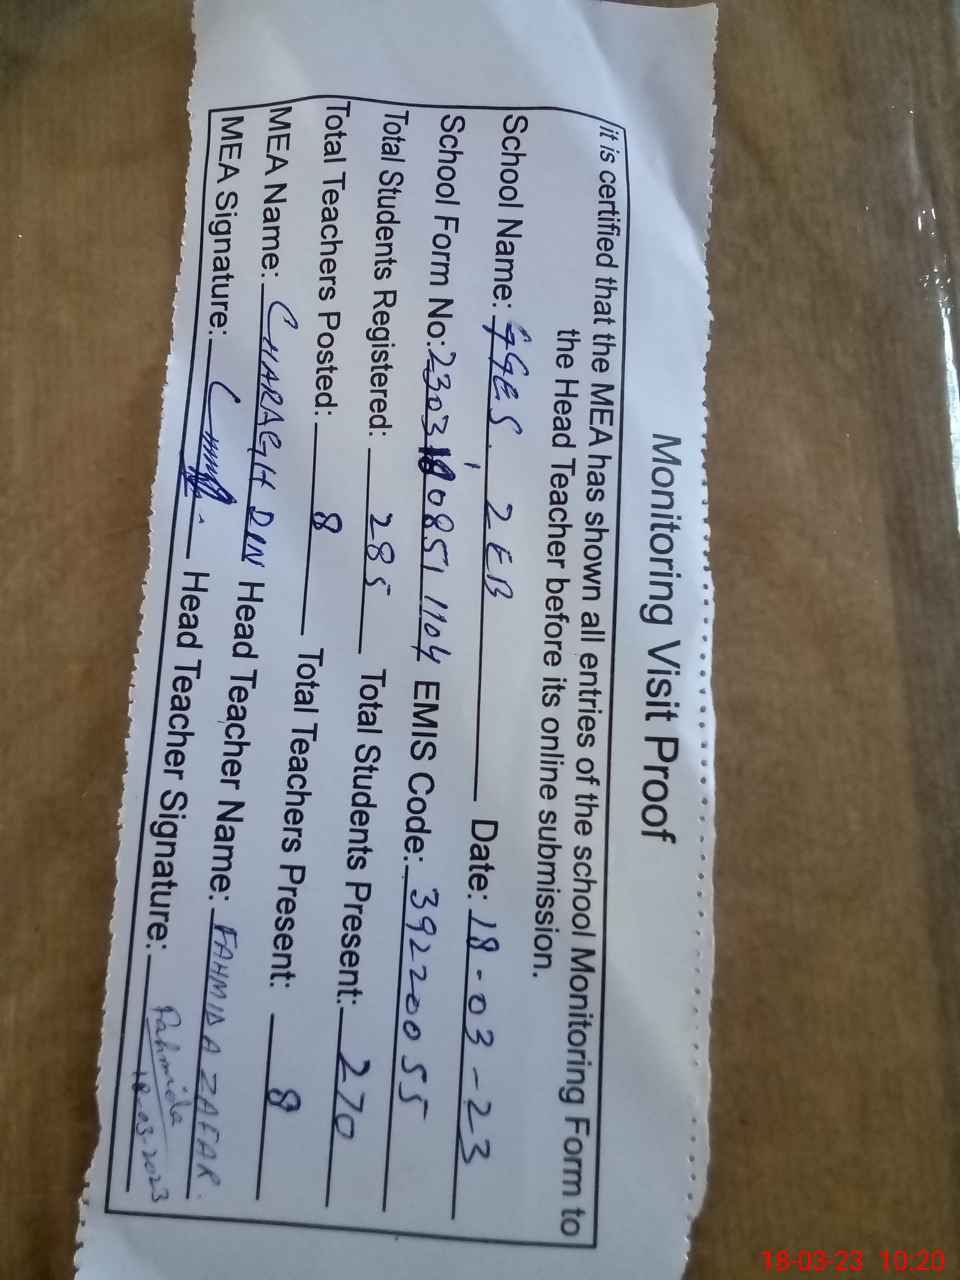 Monitoring Visit Proof
it is certified that the MEA has shown all entries of the school Monitoring Form to
the Head Teacher before its online submission.
School Name: GGES. 2 EB Date: 18-03-23
School Form No: 2303 08511104 EMIS Code: 39220055
Total Students Registered: 285 Total Students Present: 270
Total Teachers Posted: 8 Total Teachers Present: 8
MEA Name: CHARAGH DIN Head Teacher Name: FAHMIDA ZAFAR.
MEA Signature: Head Teacher Signature: Fahmida
18-03-2023
18-03-23 10:20